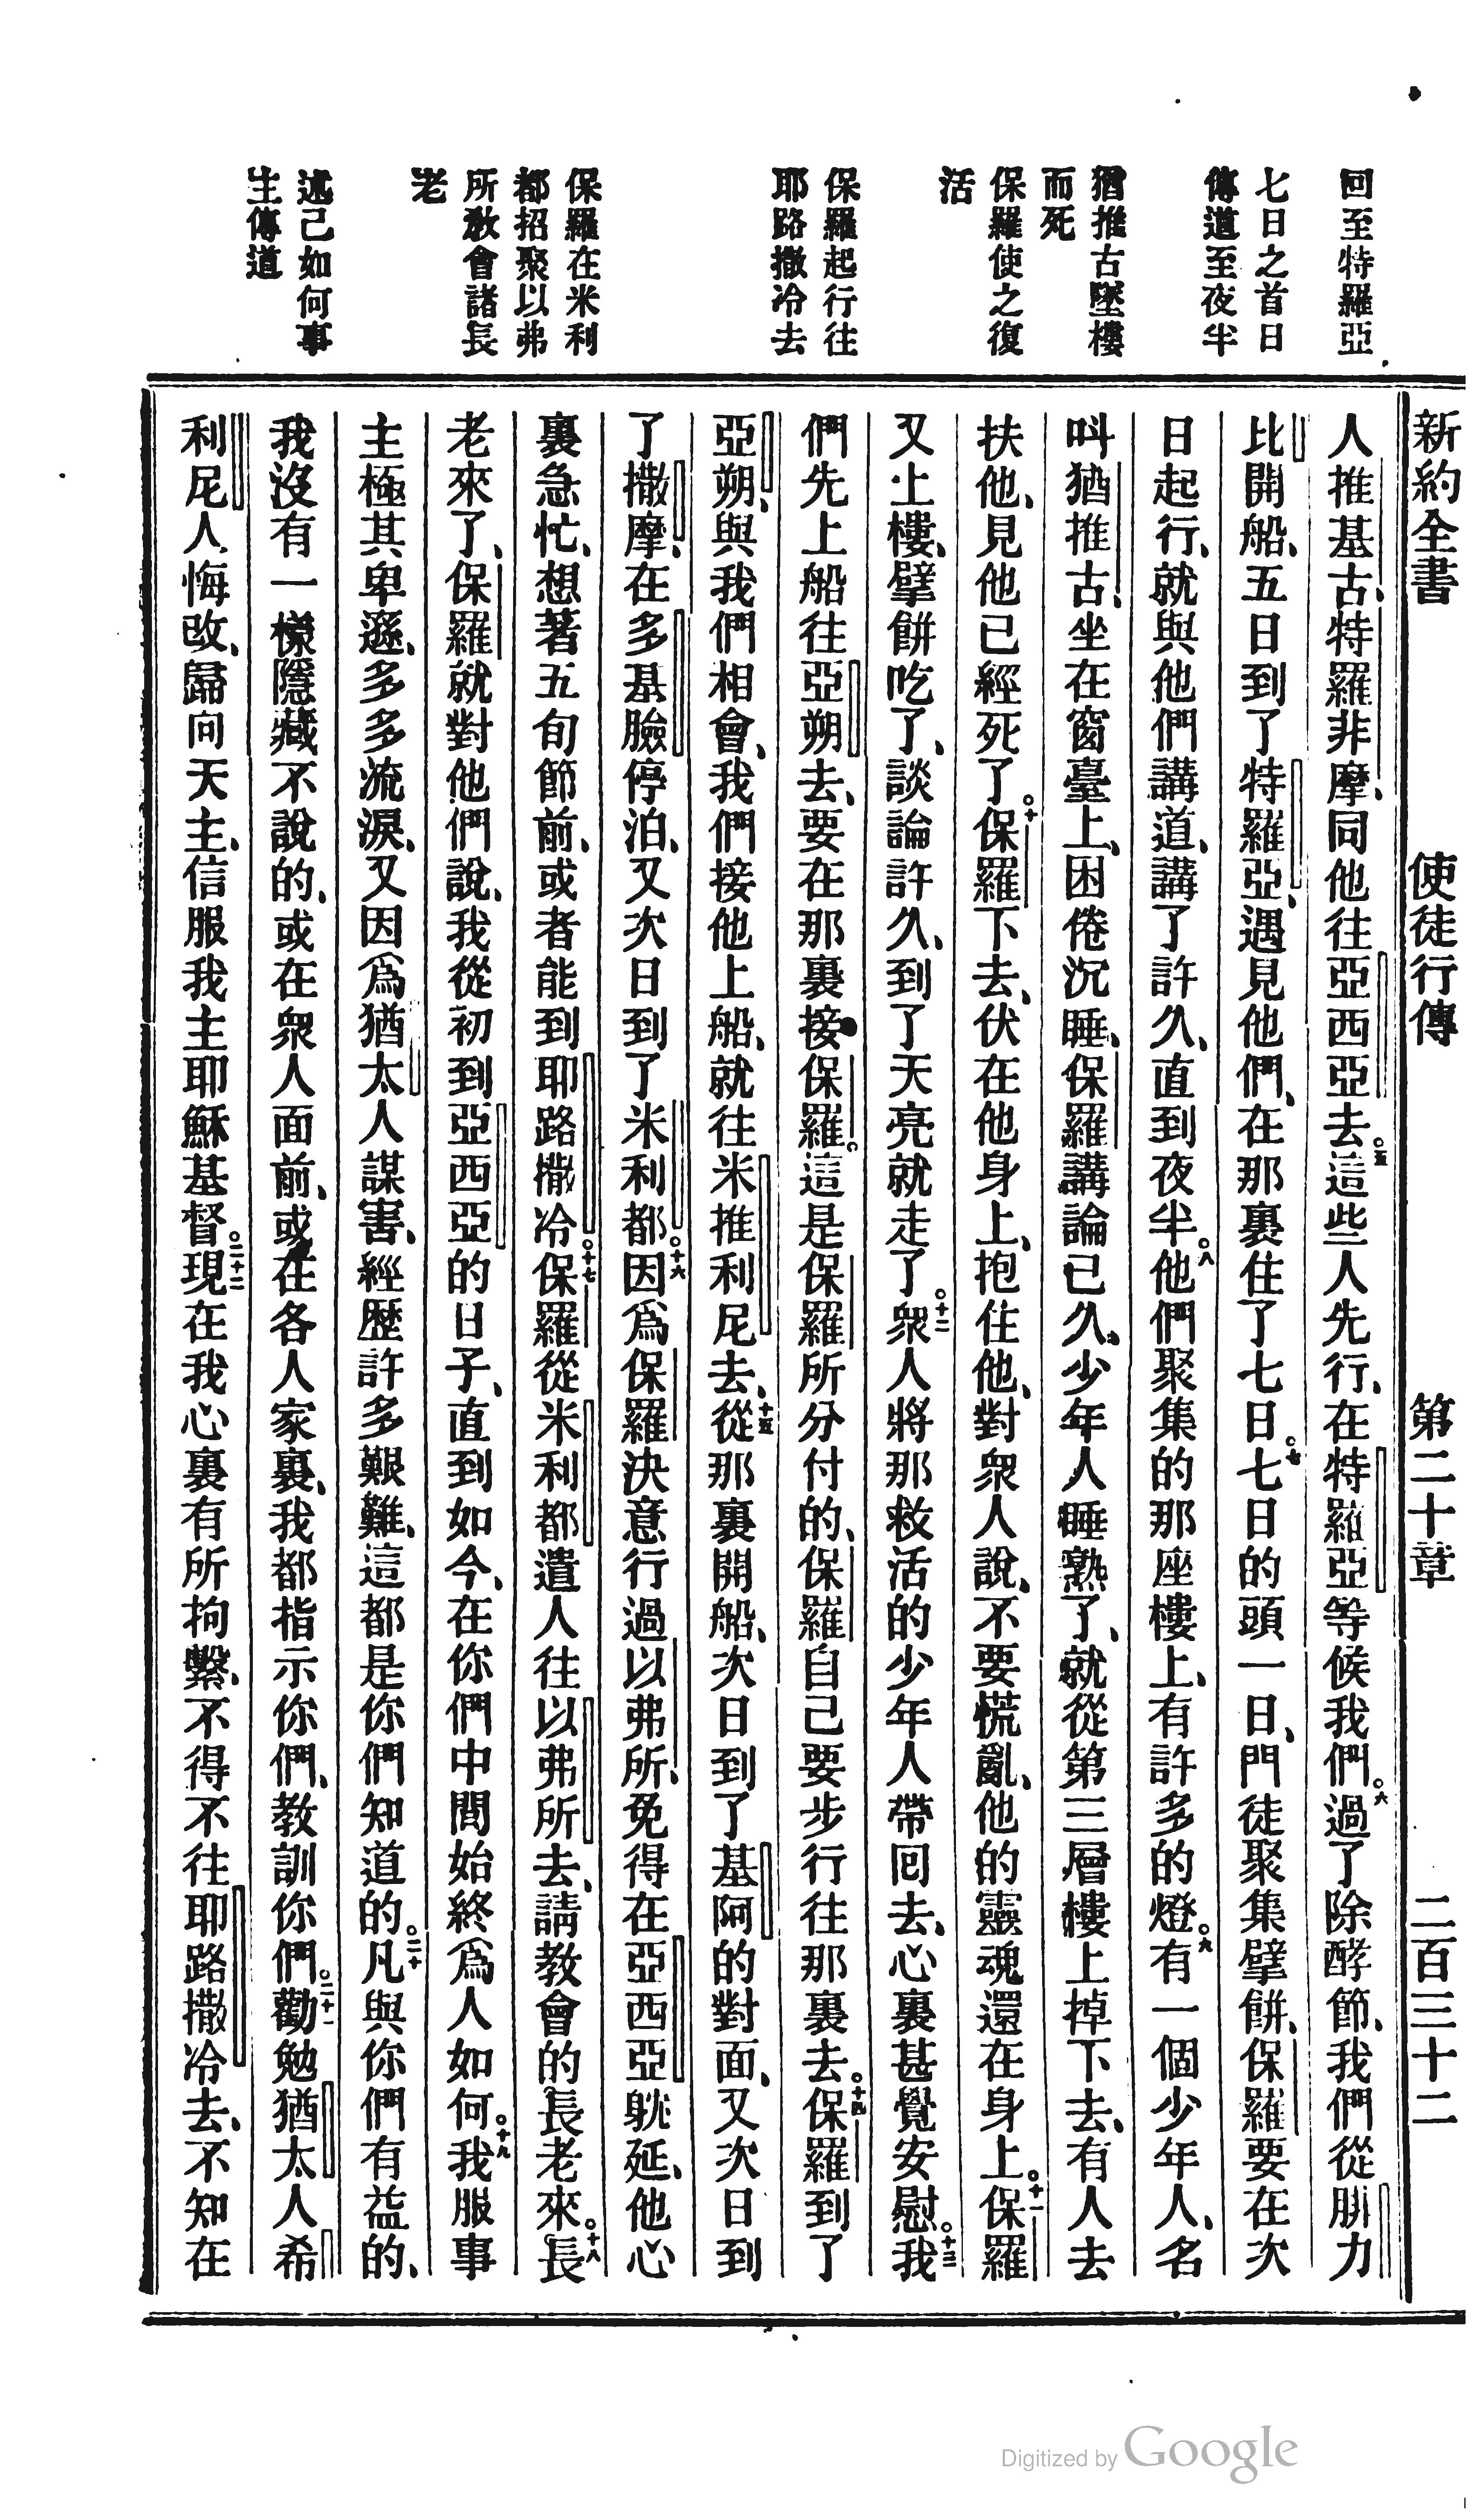 新約全書 使徒行傳 第二十章 二百三十二
回至特羅亞
七日之首日
傳道至夜半
猶推古墜樓
而死
保羅使之復
活
保羅起行往
耶路撒冷去
保羅在米利
都招聚以弗
所教會諸長
老
述己如何事
主傳道
人推基古、特羅非摩、同他往亞西亞去。五這些人先行、在特羅亞等候我們。六過了除酵節、我們從腓力
比開船、五日到了特羅亞、遇見他們、在那裏住了七日。七七日的頭一日、門徒聚集擘餅、保羅要在次
日起行、就與他們講道、講了許久、直到夜半。八他們聚集的那座樓上、有許多的燈。九有一個少年人、名
叫猶推古、坐在窗臺上、困倦沉睡、保羅講論已久、少年人睡熟了、就從第三層樓上掉下去、有人去
扶他、見他已經死了。十保羅下去、伏在他身上、抱住他、對衆人說、不要慌亂、他的靈魂還在身上。十一保羅
又上樓、擘餅吃了、談論許久、到了天亮就走了。十二衆人將那救活的少年人帶回去、心裏甚覺安慰。十三我
們先上船往亞朔去、要在那裏接保羅。這是保羅所分付的、保羅自己要步行往那裏去。十四保羅到了
亞朔、與我們相會、我們接他上船、就往米推利尼去、十五從那裏開船、次日到了基阿的對面、又次日到
了撒摩、在多基臉停泊、又次日到了米利都。十六因爲保羅決意行過以弗所、免得在亞西亞躭延、他心
裏急忙、想著五旬節前、或者能到耶路撒冷。十七保羅從米利都遣人往以弗所去、請教會的長老來。十八長
老來了、保羅就對他們說、我從初到亞西亞的日子、直到如今、在你們中間始終爲人如何。十九我服事
主極其卑遜、多多流淚、又因爲猶太人謀害、經歷許多艱難、這都是你們知道的。二十凡與你們有益的、
我沒有一樣隱藏不說的、或在衆人面前、或在各人家裏、我都指示你們、教訓你們。二十一勸勉猶太人希
利尼人悔改、歸向天主、信服我主耶穌基督。二十二現在我心裏有所拘繫、不得不往耶路撒冷去、不知在
Digitized by Google